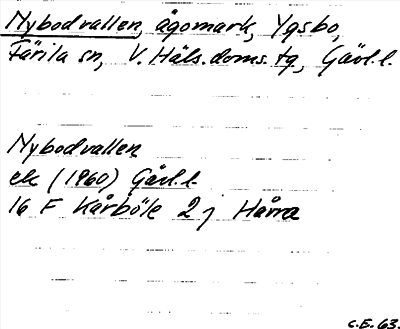 Nybodvallen, ägomark, Ygsbo,
Färila sn, V. Häls. doms. tg, Gävl. l.
Nybodvallen
ek (1960) Gävl. l.
16 F Kårböle 2 j Harra
C.E. 63.